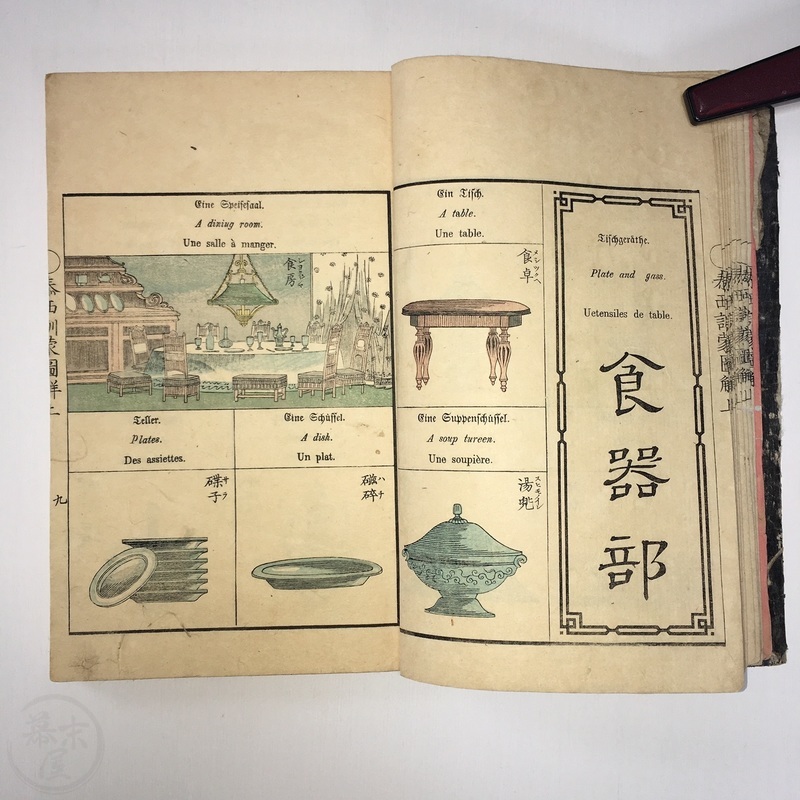 Tischgeräthe.
Plate and gass.
Uetensiles de table.
食器部
Ein Tisch.
A table.
Une table.
食卓
メシツクヘ
Eine Suppenschüssel.
A soup tureen.
Une soupière.
湯
Eine Speisesaal.
A diniug room.
Une salle à manger.
食房
Eine Schüssel.
A dish.
Un plat.
ハチ
Teller.
Plates.
Des assiettes.
碟子
サラ
泰西訓蒙圖解上
九
泰西訓蒙圖解上
幕末屋